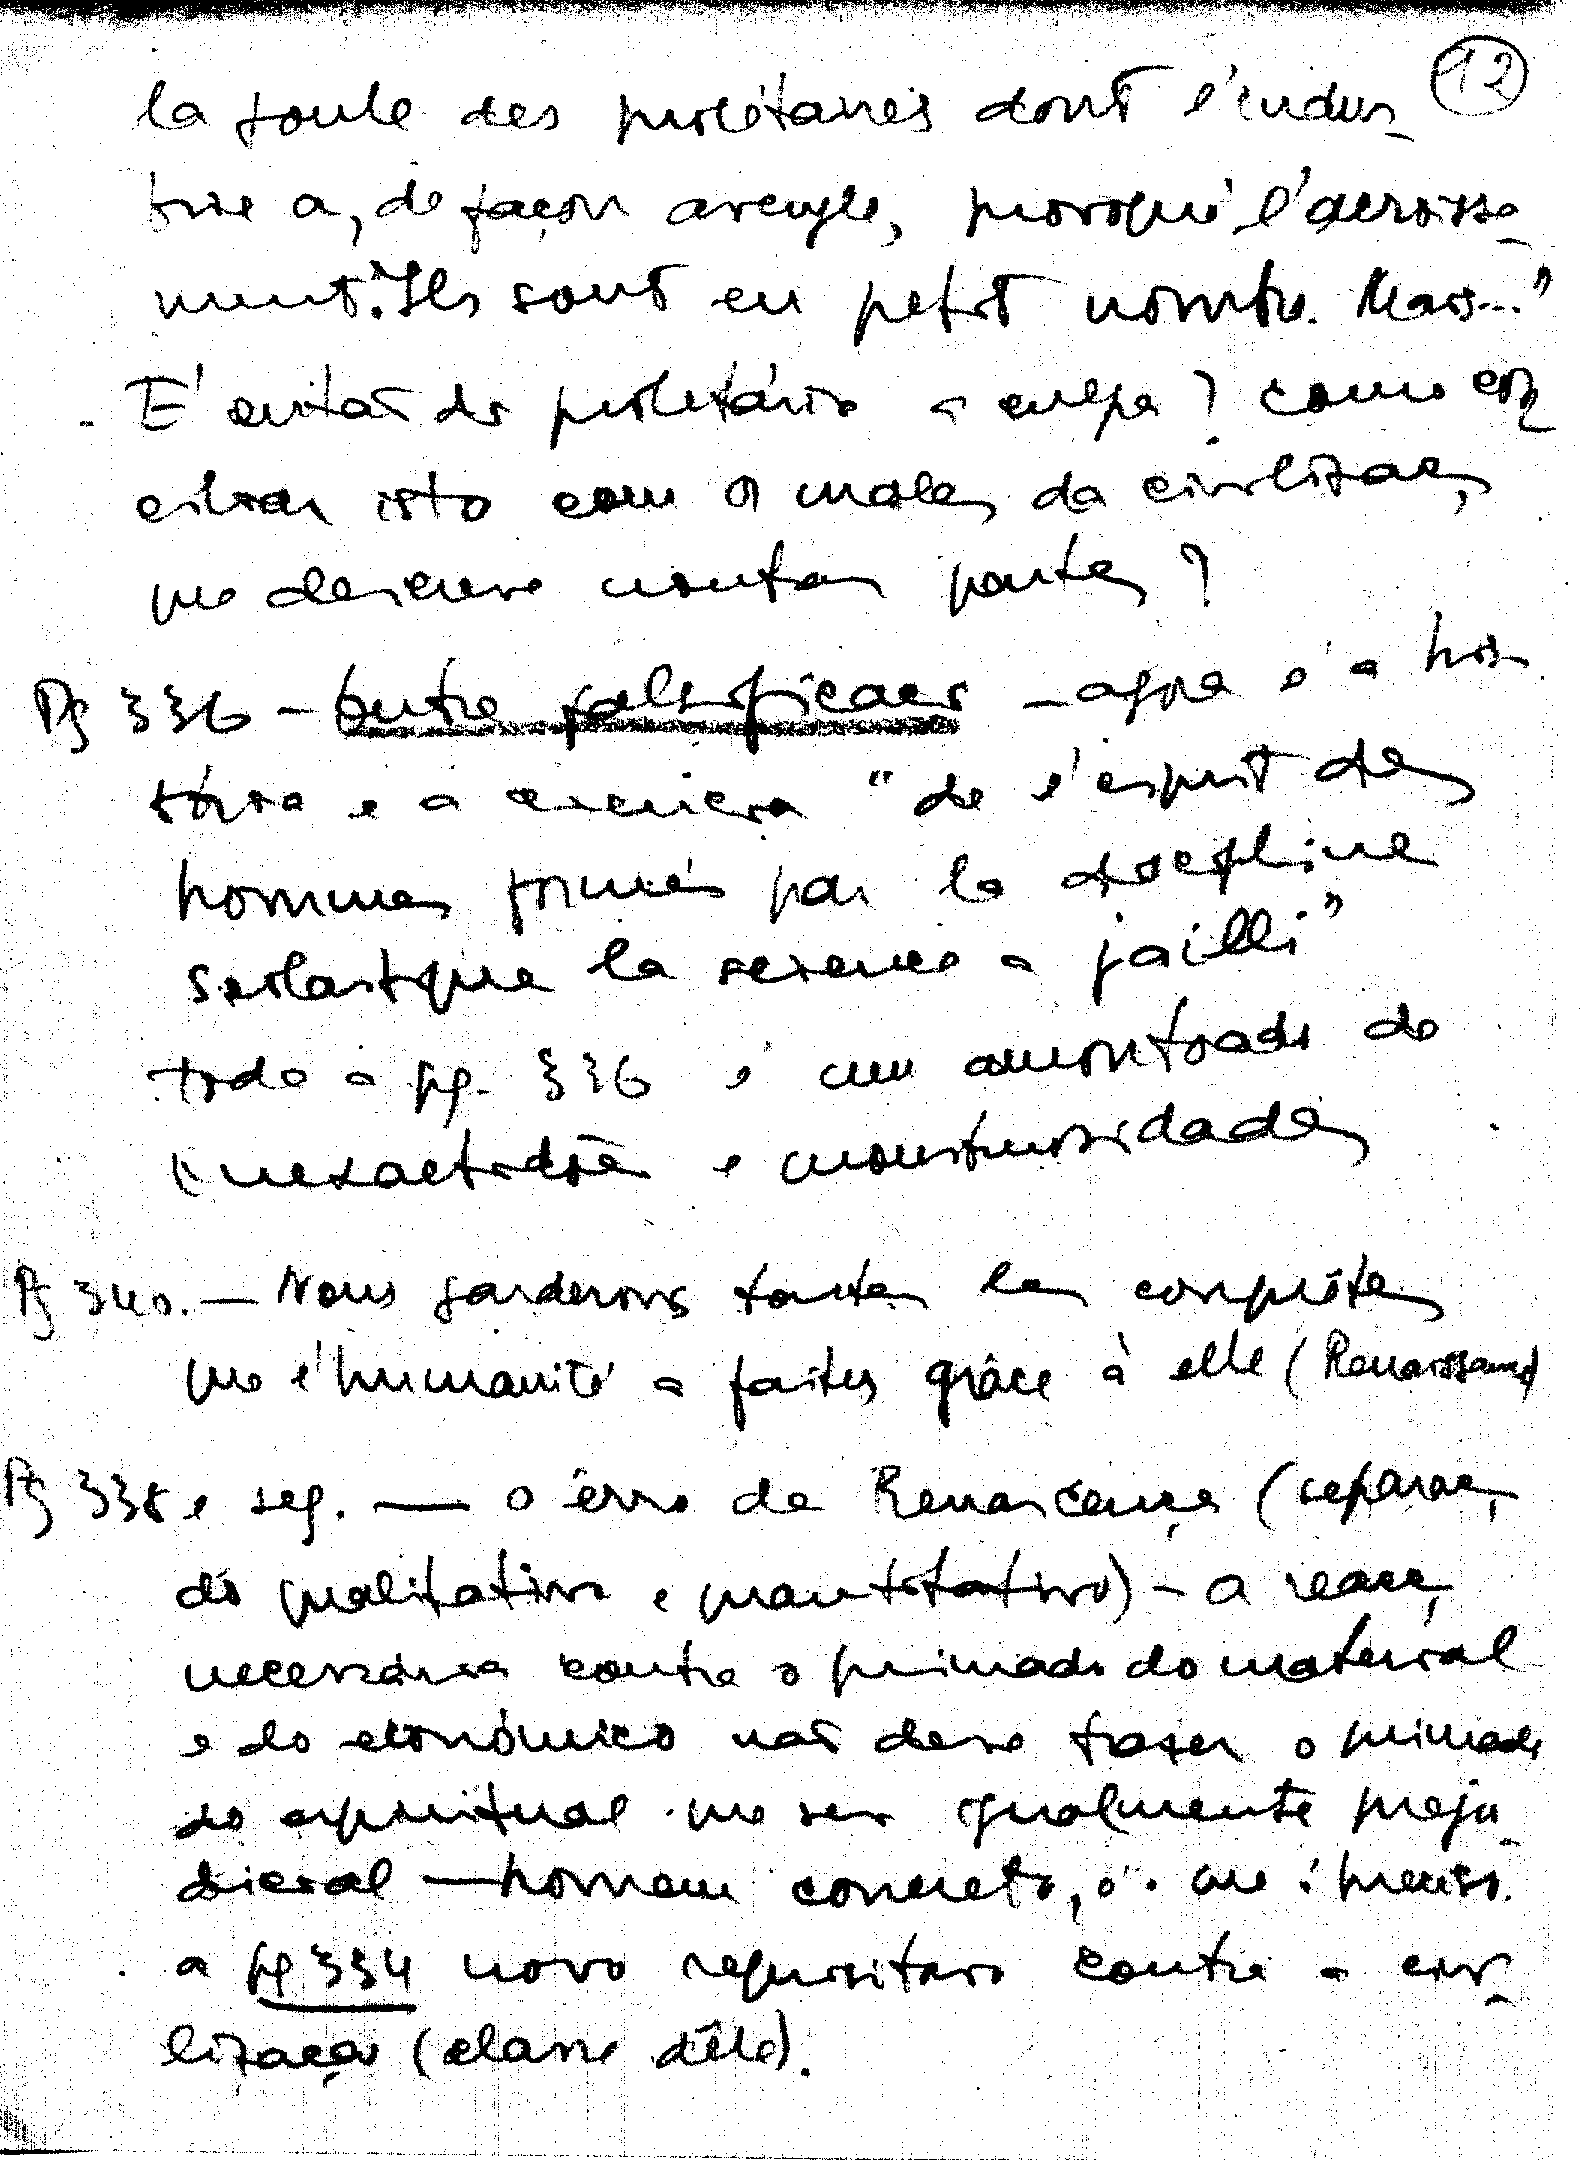 12
la foule des prolétaires dont l'indus-
trie a, de façon aveugle, provoqué l'accroisse-
ment". Ils sont en petit nombre. Mais..."
- É então do proletário a culpa? como con-
ciliar isto com os males da civilização,
que descreve noutras partes?
Pg 336 - Outra falsificação - agora é a his-
tória e a ciência "de l'esprit des
hommes formés par la discipline
scolastique la science a jailli"
toda a pg. 336 é um amontoado de
inexactidões e monstruosidades
Pg 340. — Nous garderons toutes les conquêtes
que l'humanité a faites grâce à elle (Renaissance)
Pg 338 e seg. — o êrro da Renascença (separação
do qualitativo e quantitativo) - a reacção
necessária contra o primado do material
e do económico não deve trazer o primado
do espiritual que será igualmente preju-
dicial — homem concreto, é o que é preciso.
a pg 334 novo requisitório contra a civi-
lização (classe dêle).